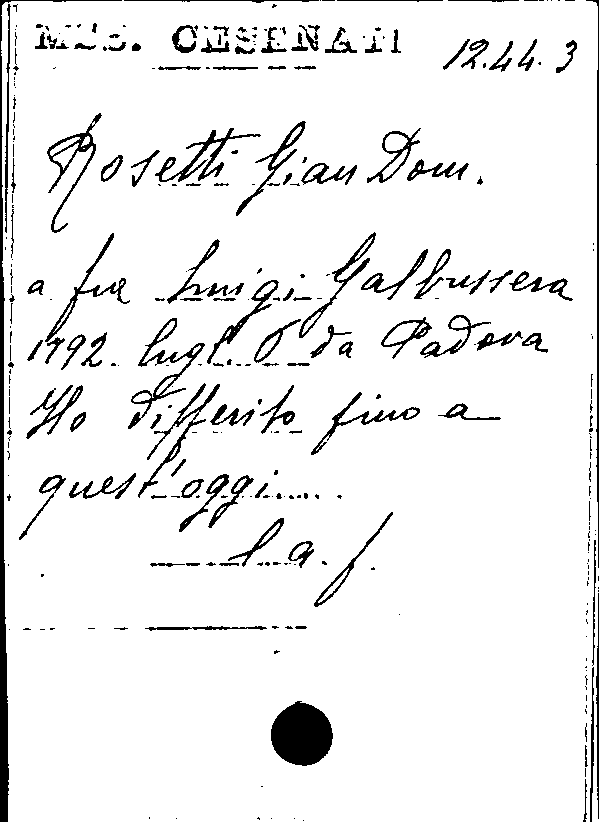 MSS. CESENATI
12.44.3
Rosetti Gian Dom.
a fra Luigi Galbussera
1792 lugl. 6 da Padova
Ho differito fino a
quest'oggi.....
l. a. f.